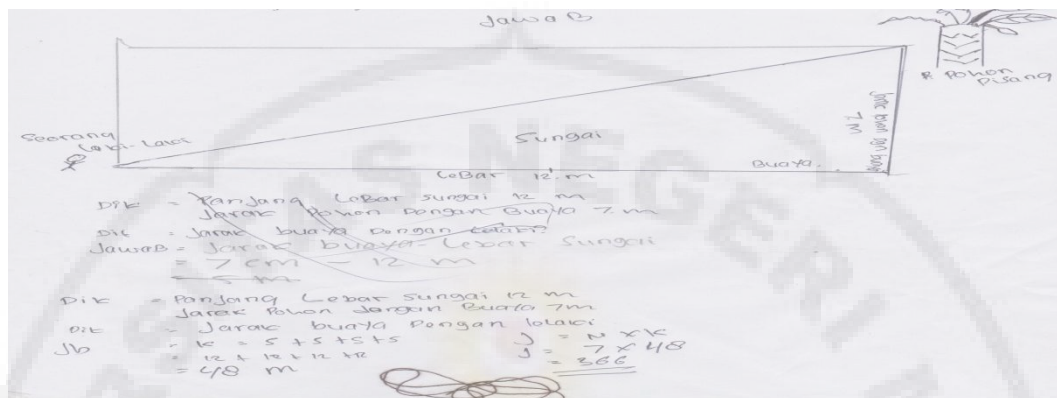 JawaB
R. Pohon
Pisang
Seorang
Laki-Laki
Sungai
Buaya.
7 m
LeBar 12 m
Dik = Panjang LeBar sungai 12 m
Jarak Pohon Dengan Buaya 7 m
Dit = Jarak buaya Dengan Lelaki?
JawaB = Jarak buaya - Lebar Sungai
= 7 cm - 12 m
= 5 m
Dik = Panjang Lebar sungai 12 m
Jarak Pohon dengan Buaya 7m
Dit = Jarak buaya Dengan lelaki
Jb = K = S + S + S + S
= 12 + 12 + 12 + 12
= 48 m
J = N x K
J = 7 x 48
= 366
AS NEGERI